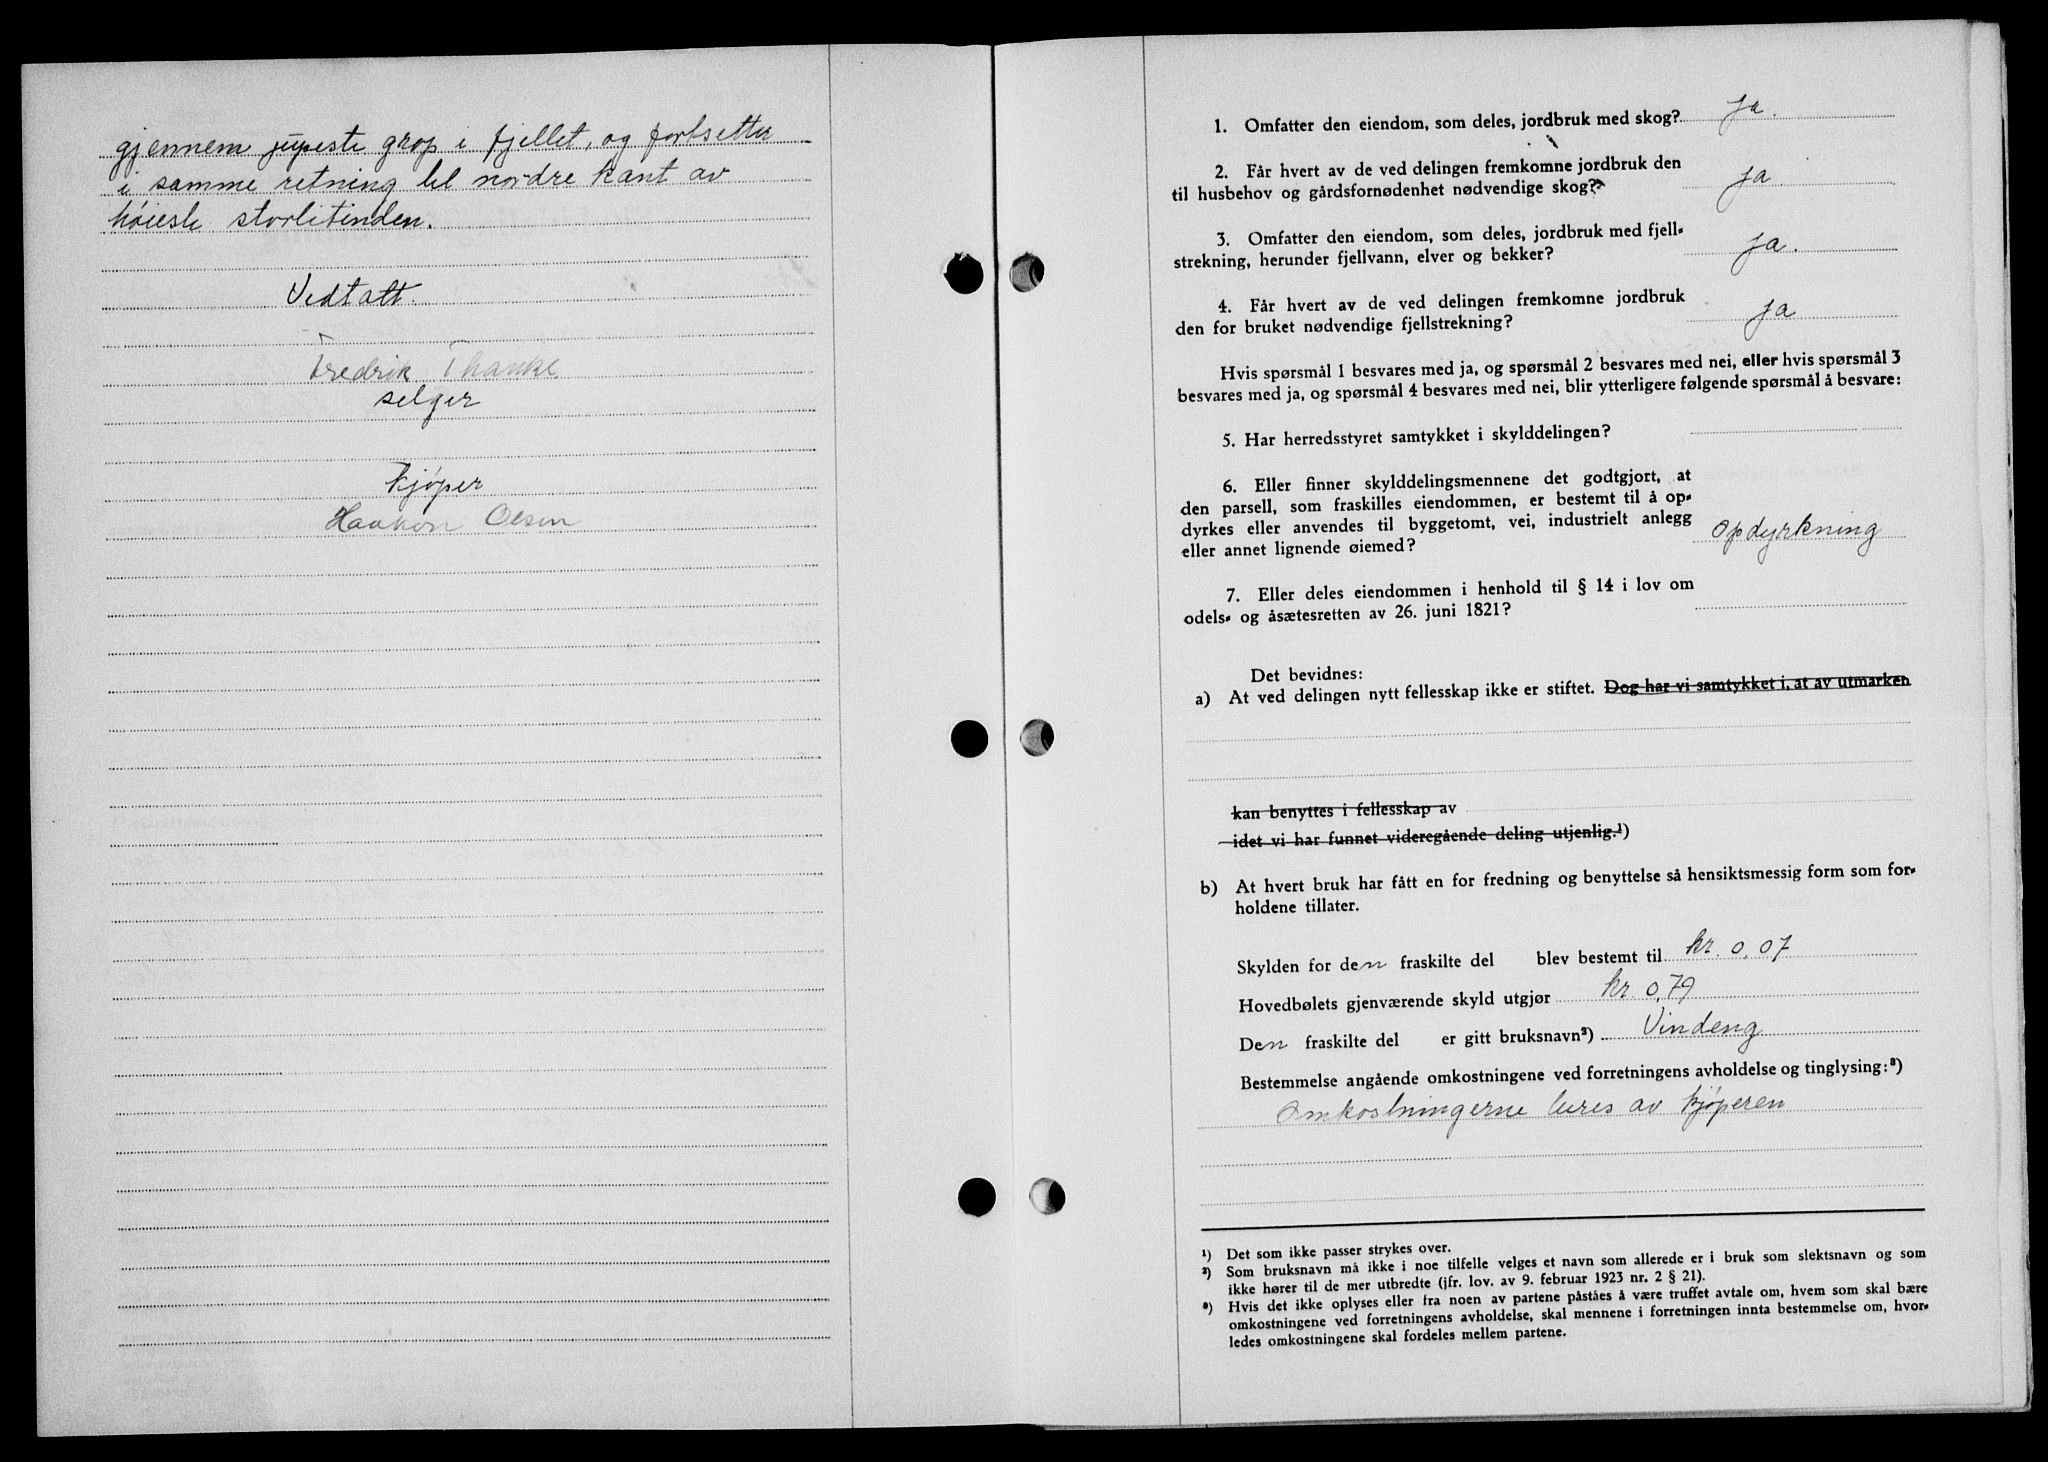 gjennem jupeste grop i fjellet, og fortsetter
i samme retning til nordre kant av
høieste storlitinden.
Vedtatt.
Fredrik Thanke
selger
kjøper
Haakon Olsen
1. Omfatter den eiendom, som deles, jordbruk med skog? ja.
2. Får hvert av de ved delingen fremkomne jordbruk den
til husbehov og gårdsfornødenhet nødvendige skog? ja.
3. Omfatter den eiendom, som deles, jordbruk med fjell-
strekning, herunder fjellvann, elver og bekker? ja.
4. Får hvert av de ved delingen fremkomne jordbruk
den for bruket nødvendige fjellstrekning? ja
Hvis spørsmål 1 besvares med ja, og spørsmål 2 besvares med nei, eller hvis spørsmål 3
besvares med ja, og spørsmål 4 besvares med nei, blir ytterligere følgende spørsmål å besvare:
5. Har herredsstyret samtykket i skylddelingen?
6. Eller finner skylddelingsmennene det godtgjort, at
den parsell, som fraskilles eiendommen, er bestemt til å op-
dyrkes eller anvendes til byggetomt, vei, industrielt anlegg
eller annet lignende øiemed? Opdyrkning
7. Eller deles eiendommen i henhold til § 14 i lov om
odels- og åsætesretten av 26. juni 1821?
Det bevidnes:
a) At ved delingen nytt fellesskap ikke er stiftet. Dog har vi samtykket i, at av utmarken
kan benyttes i fellesskap av
idet vi har funnet videregående deling utjenlig.¹)
b) At hvert bruk har fått en for fredning og benyttelse så hensiktsmessig form som for-
holdene tillater.
Skylden for den fraskilte del blev bestemt til kr. 0,07
Hovedbølets gjenværende skyld utgjør kr 0,79
Den fraskilte del er gitt bruksnavn²) Vindeng
Bestemmelse angående omkostningene ved forretningens avholdelse og tinglysing:³)
Omkostningerne bæres av kjøperen
¹) Det som ikke passer strykes over.
²) Som bruksnavn må ikke i noe tilfelle velges et navn som allerede er i bruk som slektsnavn og som
ikke hører til de mer utbredte (jfr. lov. av 9. februar 1923 nr. 2 § 21).
³) Hvis det ikke oplyses eller fra noen av partene påståes å være truffet avtale om, hvem som skal bære
omkostningene ved forretningens avholdelse, skal mennene i forretningen innta bestemmelse om, hvor-
ledes omkostningene skal fordeles mellem partene.